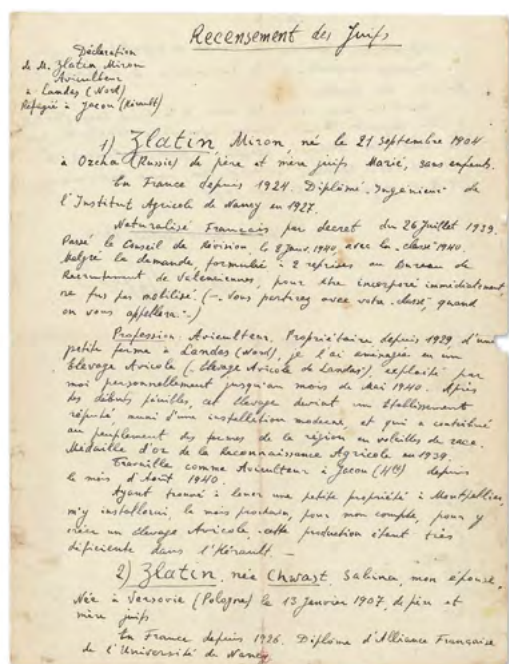 Recensement des Juifs
Déclaration
de M. Zlatin Miron
Aviculteur
à Landas (Nord)
Réfugié à Jacou (Hérault)
1) Zlatin, Miron, né le 21 septembre 1904
à Orcha (Russie) de père et mère juifs. Marié, sans enfants.
En France depuis 1924. Diplômé. Ingénieur de
l'Institut Agricole de Nancy en 1927.
Naturalisé Français par decret du 26 Juillet 1939.
Passé le Conseil de Révision le 2 Janv. 1940, avec la classe 1940.
Malgré la demande, formulée à 2 reprises au Bureau de
Recrutement de Valenciennes, pour être incorporé immédiatement,
ne fus pas mobilisé. (- Vous partirez avec votre classe, quand
on vous appellera -.)
Profession: Aviculteur. Propriétaire, depuis 1929 d'une
petite ferme à Landas (Nord), je l'ai aménagée en un
Elevage Avicole (- Elevage Avicole de Landas), exploité par
moi personnellement jusqu'au mois de Mai 1940. Après
des débuts pénibles, cet élevage devint un Etablissement
réputé, muni d'une installation moderne, et qui a contribué
au peuplement des fermes de la région en volailles de race.
Médaille d'or de la Reconnaissance Agricole en 1939.
Travaille comme Aviculteur à Jacou (Hlt) depuis
le mois d'Août 1940.
Ayant trouvé à louer une petite propriété à Montpellier,
m'y installerai, le mois prochain, pour mon compte, pour y
créer un élevage Avicole, cette production étant très
déficiente dans l'Hérault. -
2) Zlatin, née Chwast, Sabina, mon épouse,
Née à Varsovie (Pologne) le 13 Janvier 1907, de père et
mère juifs
En France depuis 1926. Diplôme d'Alliance Française
de l'Université de Nancy